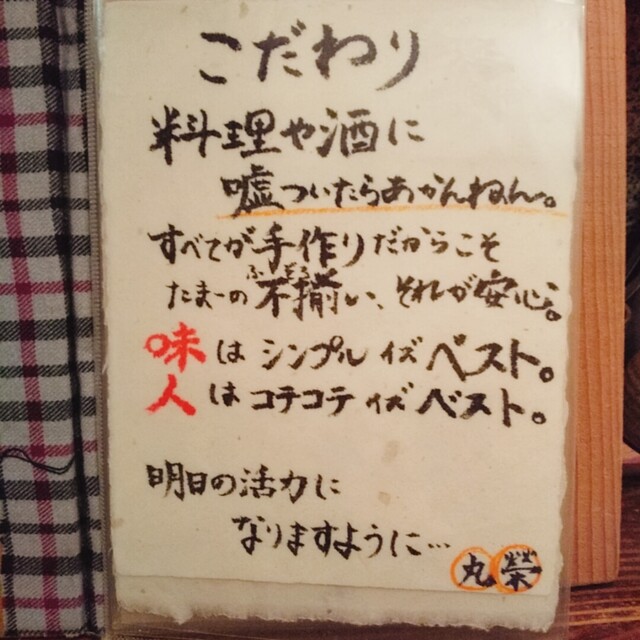 こだわり
料理や酒に
嘘ついたらあかんねん。
すべてが手作りだからこそ
ふぞろ
たまーの不揃い、それが安心。
味はシンプルイズベスト。
人はコテコテイズベスト。
明日の活力に
なりますように…
丸榮